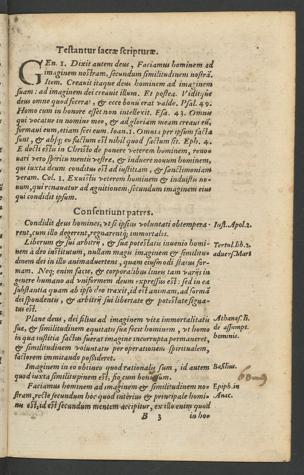 Testantur sacræ scripturæ.
GEn. 1. Dixit autem deus, Faciamus hominem ad
imaginem nostram, secundum similitudinem nostrā.
Item. Creavit itaque deus hominem ad imaginem
suam: ad imaginem dei creauit illum. Et postea. Viditque
deus omne quod fecerat, & ecce bonū erat valde. Psal. 49.
Homo cum in honore esset non intellexit. Esa. 43. Omne
qui vocatur in nomine meo, & ad gloriam meam creaui eū,
formaui eum, etiam feci eum. Ioan. 1. Omnia per ipsum facta
sunt, & absq; eo factum est nihil quod factum sit. Eph. 4.
E docti estis in Christo deponere veterem hominem, renou
uari vero spiritu mentis vestræ, & induere nouum hominem,
qui iuxta deum conditus est ad iustitiam, & sanctimoniam
veram. Col. 3. Exuistis veterem hominem & induistis no-
uum, qui renouatur ad agnitionem, secundum imaginem eius
qui condidit ipsum.
Consentiunt patres.
Condidit deus homines, vt si ipsius voluntati obtempera- Iust. Apol. 2.
rent, cum illo degerent, regnarentq; immortales.
Liberum & sui arbitrii, & sua potestatis inuenio homi- Tertul. lib. 2.
nem a deo institutum, nullam magis imaginem & similitu- aduers. Mar
dinem dei in illo animaduertens, quam eiusmodi status for-
mam. Neq; enim facie, & corporalibus lineis tam varijs in
genere humano ad vniformem deum expressus est: sed in ea
substantia quam ab ipso deo traxit, id est animam, ad formā
dei spondentis, & arbitrij sui libertate & potestate signa-
tus est.
Plane deus, dei filius ad imaginem vite immortalitatis Athanas. li.
suæ, & similitudinem equitatis suæ fecit hominem, vt homo de assumpt.
in qua iustitia factus fuerat imagine incorrupta permaneret, hominis.
& similitudinem voluntatis per operationem spiritualem,
factorem immitando possideret.
Imaginem in eo obtineo quod rationalis sum, id autem Basilius.
quod iuxta similitudinem est, sio cum
60-9
Faciamus hominem ad imaginem & similitudinem no- Epiph. in
stram, recte secundum hoc quod interius & principale homi- Anac.
nis est, id est secundum mentem accipitur, ex illo enim quod
B 3 in ho-